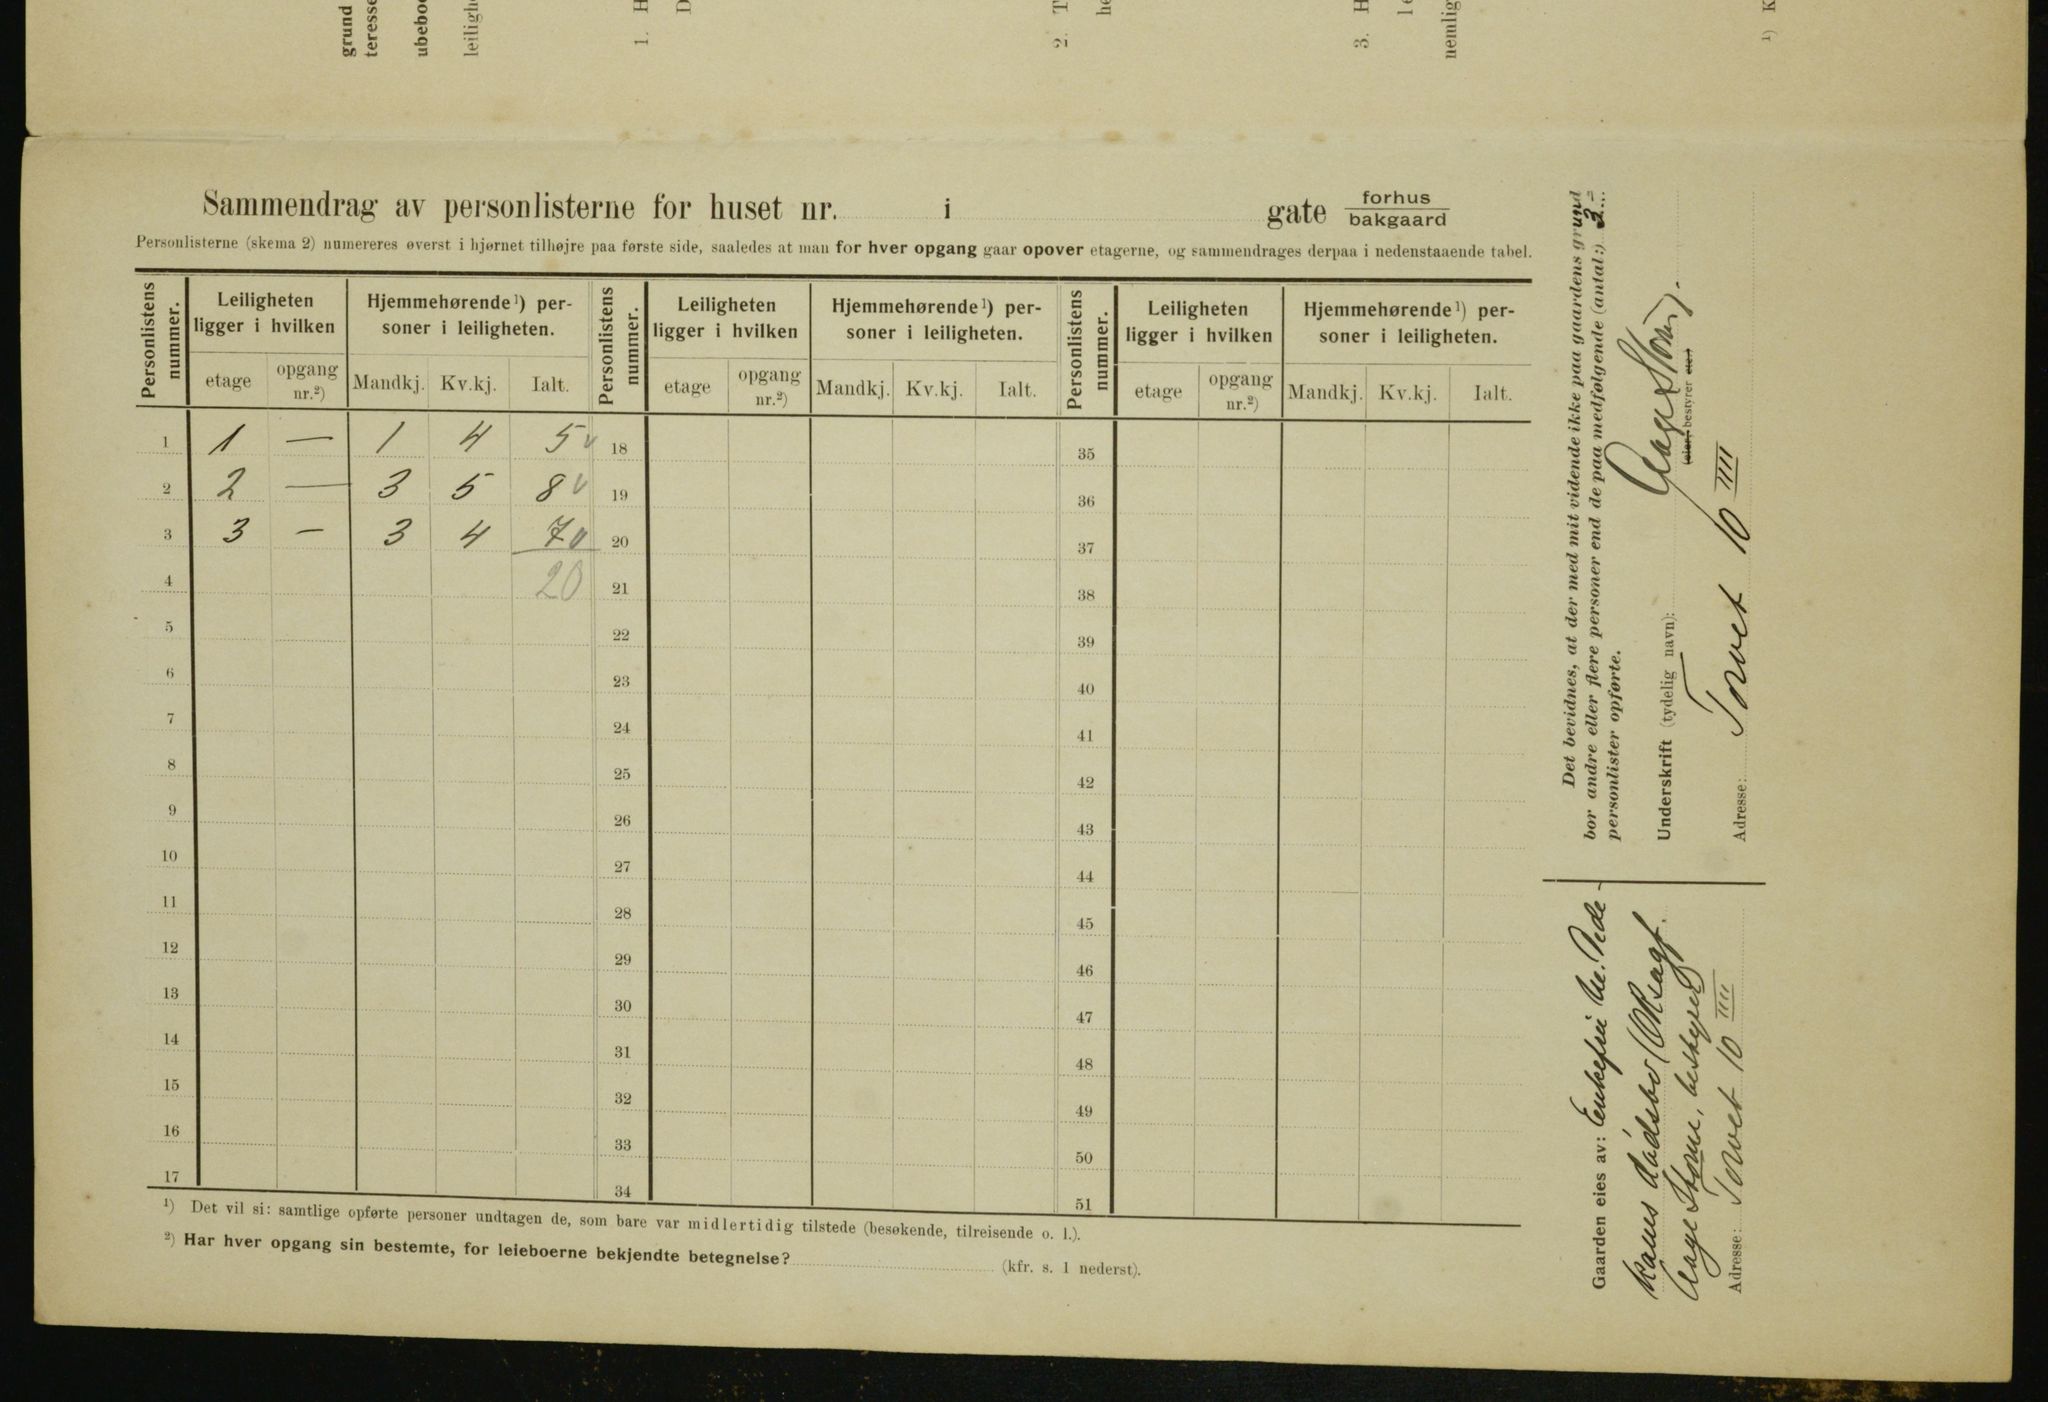 grund
teresse
ubeboe
leiligh
1. H
D
2. T
he
3. H
le
nemlig
1) K
Sammendrag av personlisterne for huset nr. i gate forhus
bakgaard
Personlisterne (skema 2) numereres øverst i hjørnet tilhøjre paa første side, saaledes at man for hver opgang gaar opover etagerne, og sammendrages derpaa i nedenstaaende tabel.
Personlistens nummer. Leiligheten ligger i hvilken Hjemmehørende 1) personer i leiligheten. Personlistens nummer. Leiligheten ligger i hvilken Hjemmehørende 1) personer i leiligheten. Personlistens nummer. Leiligheten ligger i hvilken Hjemmehørende 1) personer i leiligheten.
etage opgang nr.2) Mandkj. Kv.kj. Ialt. etage opgang nr.2) Mandkj. Kv.kj. Ialt. etage opgang nr.2) Mandkj. Kv.kj. Ialt.
1 1 — 1 4 5 18 35
2 2 — 3 5 8 19 36
3 3 — 3 4 7 20 37
4 20 21 38
5 22 39
6 23 40
7 24 41
8 25 42
9 26 43
10 27 44
11 28 45
12 29 46
13 30 47
14 31 48
15 32 49
16 33 50
17 34 51
1) Det vil si: samtlige opførte personer undtagen de, som bare var midlertidig tilstede (besøkende, tilreisende o. l.).
2) Har hver opgang sin bestemte, for leieboerne bekjendte betegnelse? (kfr. s. 1 nederst).
Det bevidnes, at der med mit vidende ikke paa gaardens grund
bor andre eller flere personer end de paa medfølgende (antal:) 3
personlister opførte.
Underskrift (tydelig navn): Aage Storm.
(eier, bestyrer etc.)
Adresse: Torvet 10 IIII
Gaarden eies av: Enkefru
Aage Storm, bestyrer
Adresse: Torvet 10 IIII